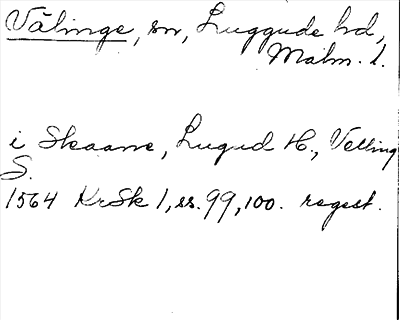 Välinge, sn, Luggude hd,
Malm. l.
i Skaane, Lugud H., Velling
S.
1564 KrSk 1, ss. 99, 100. regest.